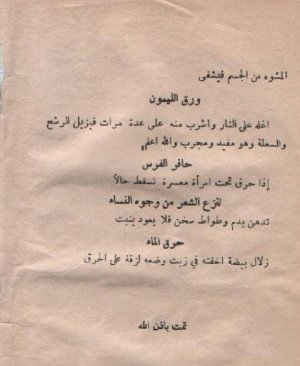 المشوه من الجسم فيشفى
ورق الليمون
اغله على النار واشرب منه على عدة مرات فيزيل الرشح
والسعلة وهو مفيد ومجرب والله اعلم
حافر الفرس
إذا حرق تحت امرأة معسرة تسقط حالاً
لفزع الشعر من وجوه النساء
تدهن بدم وطواط سخن فلا يعود ينبت
حرق الماء
زلال بيضة اخفته في زيت وضعه لزقة على الحرق
تمت باذن الله